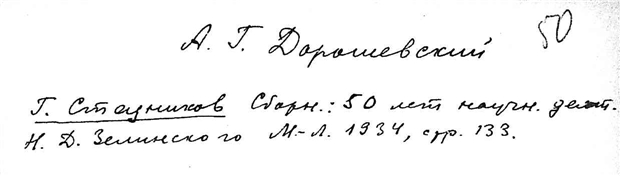 50
А. Г. Дорошевский
Г. Стадников Сборн.: 50 лет научн. деят.
Н. Д. Зелинского М.-Л. 1934, стр. 133.